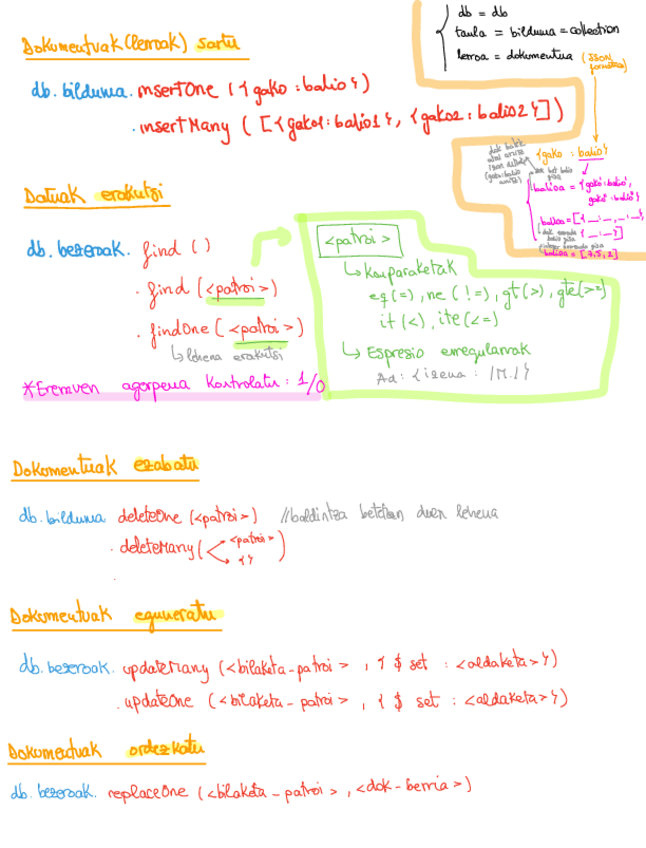 db = db
taula = bilduma = collection
lerroa = dokumentua (JSON formatua)
Dokumentuak (lerroak) sartu
db. bilduma. insertOne ({gako : balio})
. insertMany ([{gako1: balio1}, {gako2 : balio2}])
{gako : balio}
balioa = {gako: balio,
gako: balio}
balioa = [{_:_, _:_},
{_:_}]
balioa = [7,5,2]
Datuak erakutsi
db. bezeroak. find ()
. find (<patroi>)
. findOne (<patroi>)
↳ lehena erakutsi
*Eremuen agerpena kontrolatu : 1/0
<patroi>
↳ Konparaketak
eq(=), ne (!=), gt(>), gte(>=)
it(<), ite(<=)
↳ Espresio erregularrak
Ad: {izena : /M./}
Dokumentuak ezabatu
db. bilduma deleteOne (<patroi>) //baldintza betetzen duen lehena
. deleteMany (<patroi>
{})
Dokumentuak eguneratu
db. bezeroak. updateMany (<bilaketa-patroi> , {$ set : <aldaketa>})
. updateOne (<bilaketa-patroi> , {$ set : <aldaketa>})
Dokumentuak ordezkatu
db. bezeroak. replaceOne (<bilaketa-patroi> , <dok-berria>)